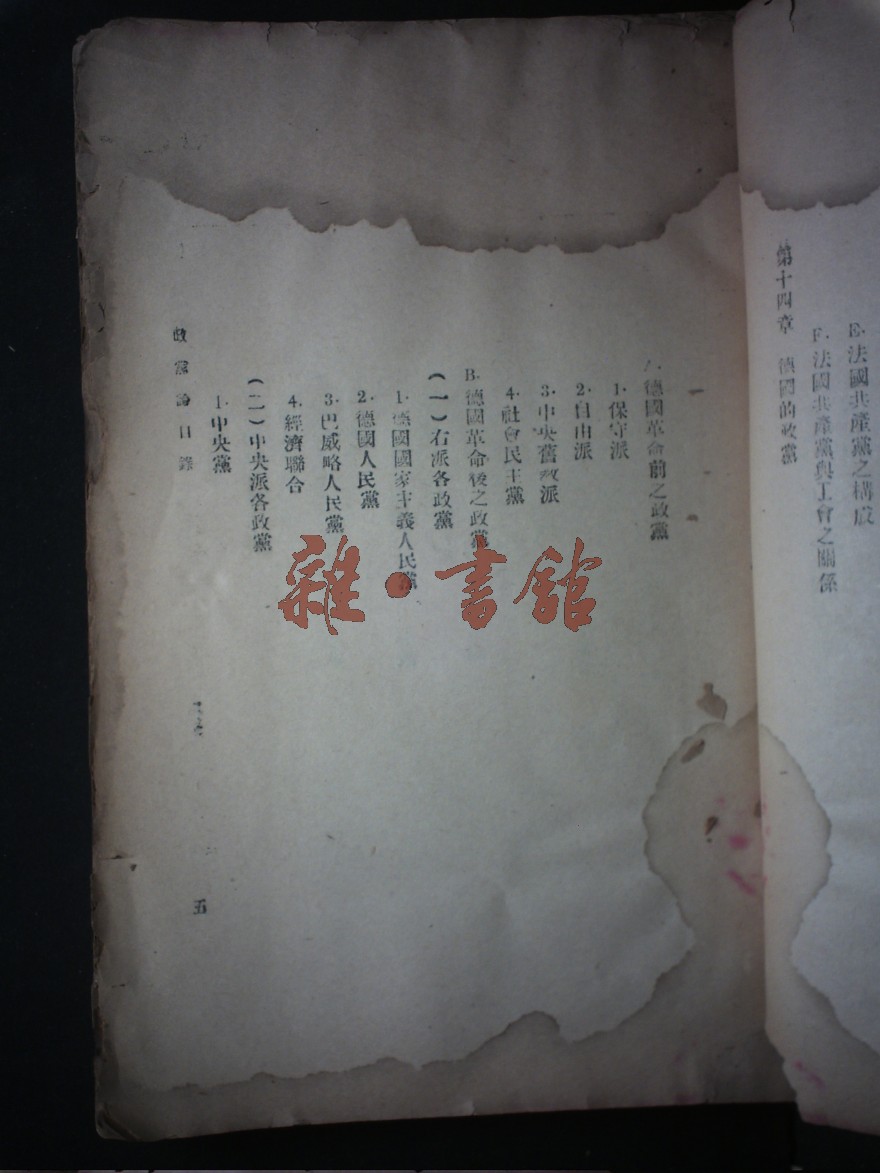 E. 法國共產黨之構成
F. 法國共產黨與工會之關係
第十四章 德國的政黨
A. 德國革命前之政黨
1. 保守派
2. 自由派
3. 中央舊教派
4. 社會民主黨
B. 德國革命後之政黨
(一)右派各政黨
1. 德國國家主義人民黨
2. 德國人民黨
3. 巴威略人民黨
4. 經濟聯合
(二)中央派各政黨
1. 中央黨
政黨論目錄
五
雜·書館